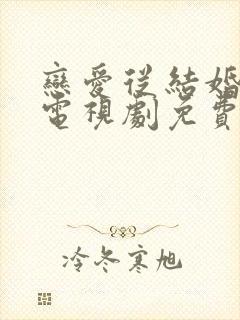 戀愛從結婚
電視劇免費
冷冬寒旭